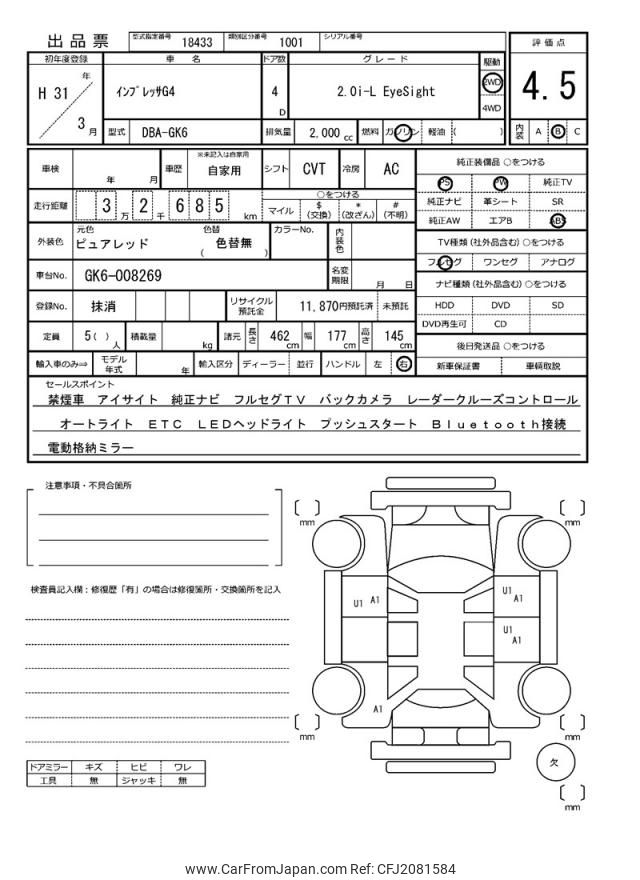 出品票 型式指定番号 18433 類別区分番号 1001 シリアル番号
評価点
4.5
内装 A B C
初年度登録 車名 ドア数 グレード 駆動
H 31 年 3 月
ｲﾝﾌﾟﾚｯｻG4 4 D 2.0i-L EyeSight 2WD 4WD
型式 DBA-GK6 排気量 2,000 cc 燃料 ガソリン 軽油 ( )
車検 年 月 車歴 ※未記入は自家用 自家用 シフト CVT 冷房 AC
走行距離 3 万 2 千 6 8 5 km
○をつける
マイル $(交換) *(改ざん) #(不明)
外装色 元色 ピュアレッド 色替 色替無 ( ) カラーNo. 内装色
車台No. GK6-008269 名変期限 月 日
登録No. 抹消 リサイクル預託金 11,870円預託済 未預託
定員 5( ) 人 積載量 kg 諸元 長さ 462 cm 幅 177 cm 高さ 145 cm
輸入車のみ⇒ モデル年式 年 輸入区分 ディーラー 並行 ハンドル 左 右
純正装備品 ○をつける
PS PW 純正TV
純正ナビ 革シート SR
純正AW エアB ABS
TV種類 (社外品含む) ○をつける
フルセグ ワンセグ アナログ
ナビ種類 (社外品含む) ○をつける
HDD DVD SD
DVD再生可 CD
後日発送品 ○をつける
新車保証書 車輌取説
セールスポイント
禁煙車 アイサイト 純正ナビ フルセグTV バックカメラ レーダークルーズコントロール
オートライト ETC LEDヘッドライト プッシュスタート Bluetooth接続
電動格納ミラー
注意事項・不具合箇所
検査員記入欄：修復歴「有」の場合は修復箇所・交換箇所を記入
ドアミラー キズ ヒビ ワレ
工具 無 ジャッキ 無
[ ] mm [ ] mm
U1 A1 U1 A1
U1 A1
A1
[ ] mm [ ] mm
欠
[ ] mm
www.CarFromJapan.com Ref: CFJ2081584